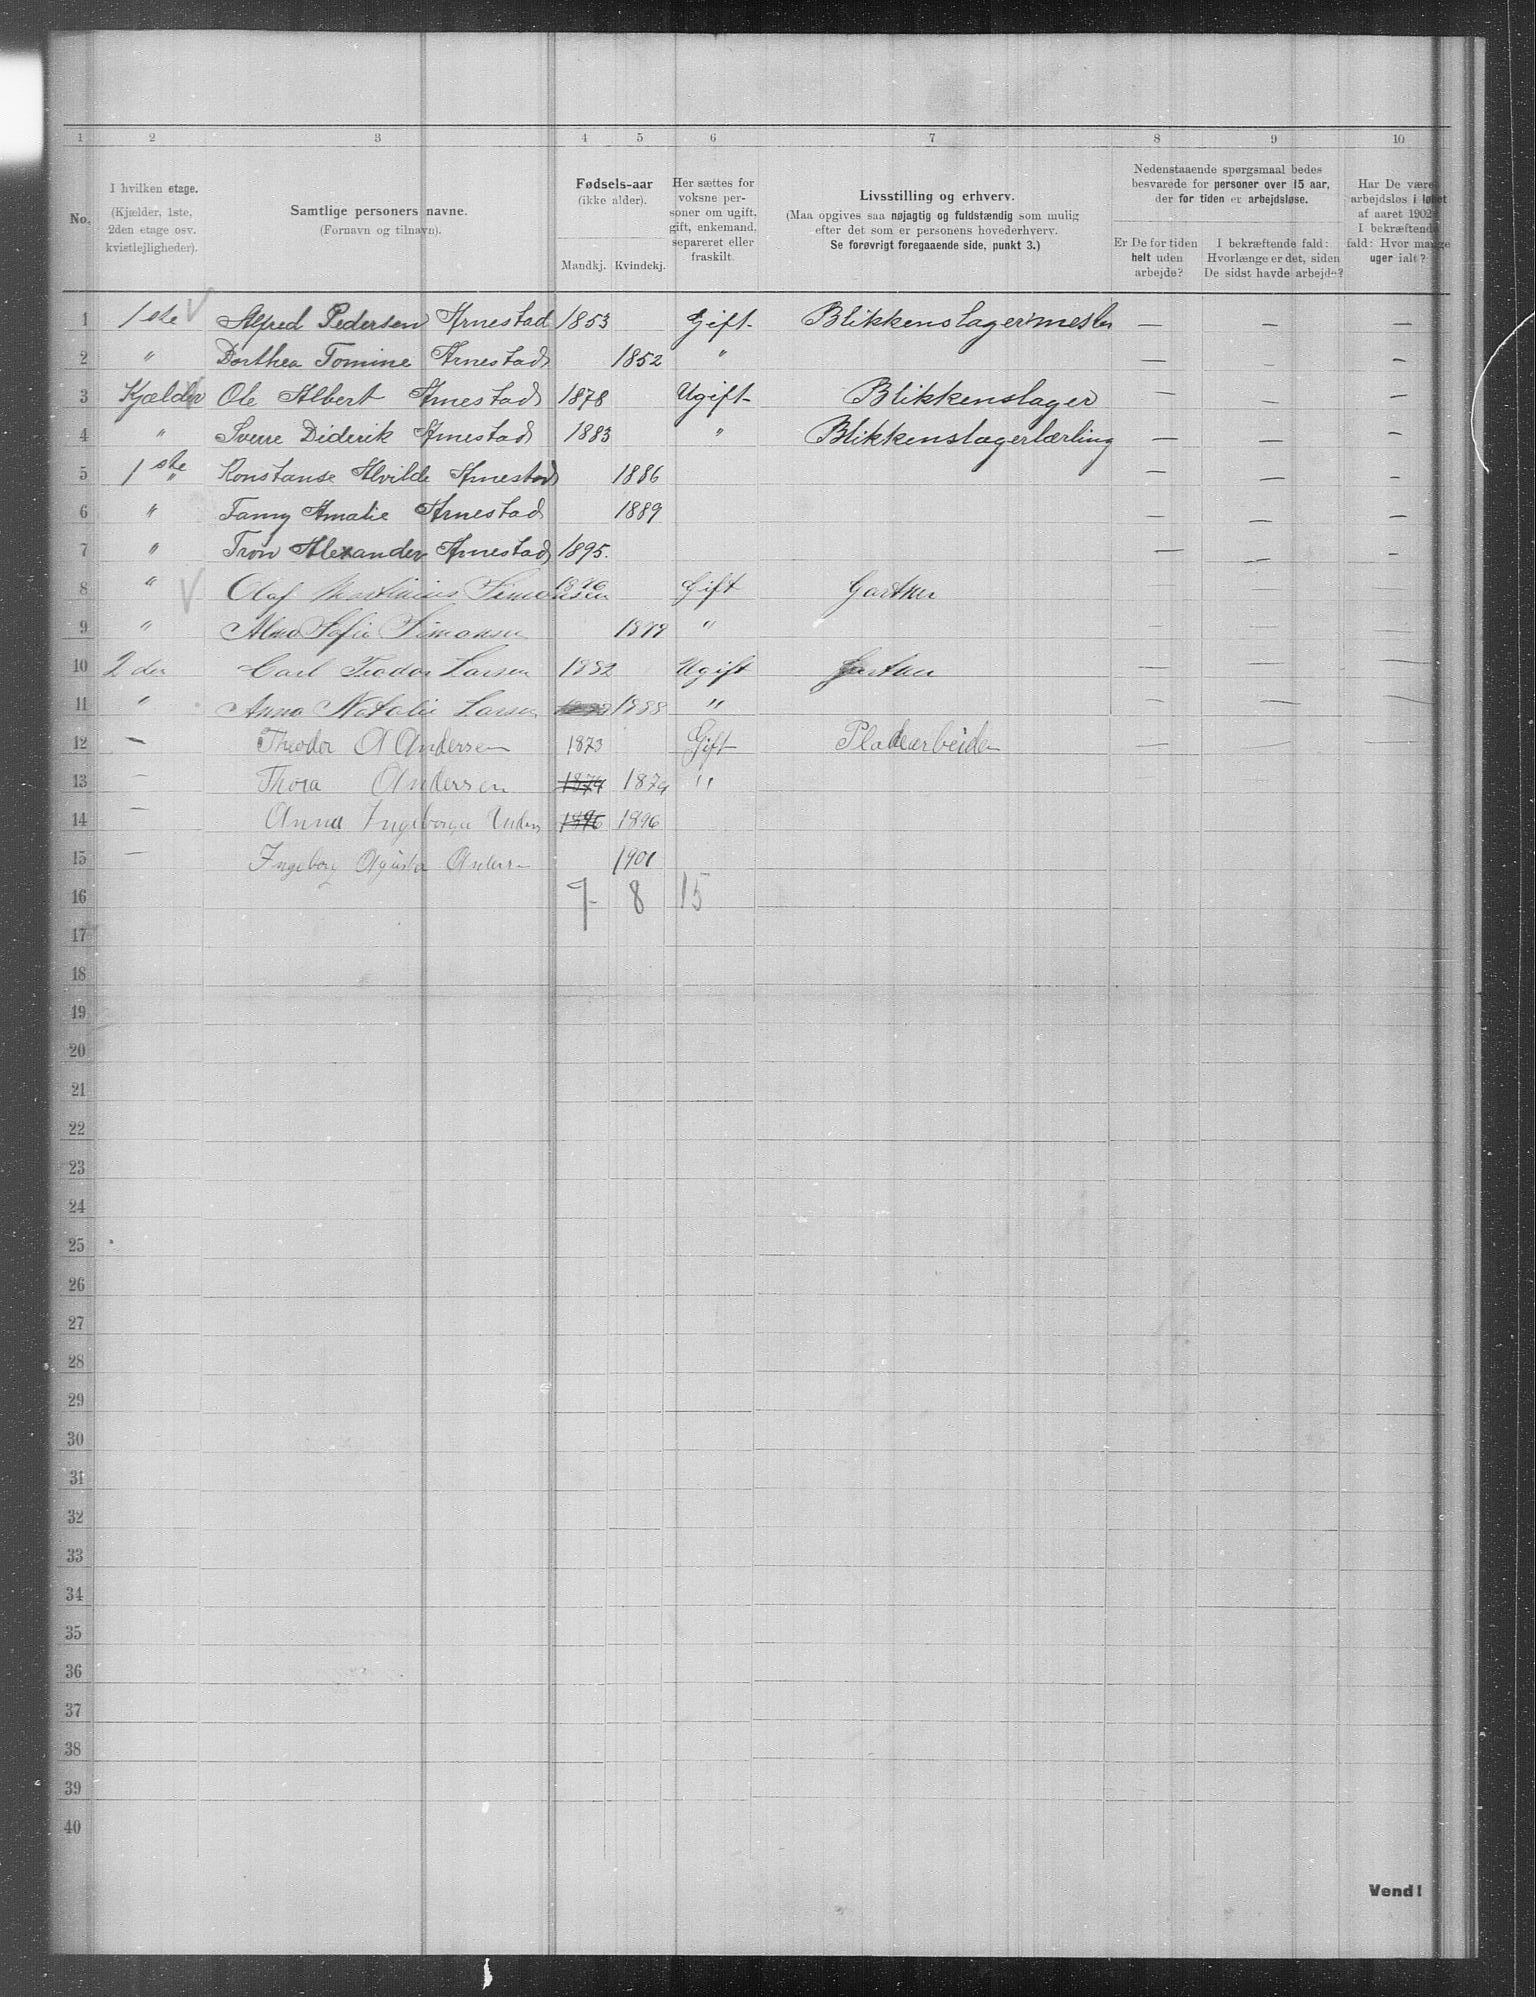 1 2 3 4 5 6 7 8 9 10
No.
I hvilken etage.
(Kjælder, 1ste,
2den etage osv.
kvistlejligheder).
Samtlige personers navne.
(Fornavn og tilnavn).
Fødsels-aar
(ikke alder).
Mandkj. Kvindekj.
Her sættes for
voksne per-
soner om ugift,
gift, enkemand,
separeret eller
fraskilt.
Livsstilling og erhverv.
(Maa opgives saa nøjagtig og fuldstændig som mulig
efter det som er personens hovederhverv.
Se forøvrigt foregaaende side, punkt 3.)
Nedenstaaende spørgsmaal bedes
besvarede for personer over 15 aar,
der for tiden er arbejdsløse.
Er De for tiden
helt uden
arbejde?
I bekræftende fald:
Hvorlænge er det, siden
De sidst havde arbejde?
Har De være
arbejdsløs i løbet
af aaret 1902?
I bekræftende
fald: Hvor mange
uger ialt?
1 1 ste Alfred Pedersen Arnestad 1853 Gift Blikkenslagermester — — —
2 " Dorthea Tomine Arnestad 1852 " — — —
3 Kjælder Ole Albert Arnestad 1878 Ugift Blikkenslager — — —
4 " Sverre Diderik Arnestad 1883 " Blikkenslagerlærling — — —
5 1 ste " Konstanse Alvilde Arnestad 1886 — — —
6 " Fanny Amalie Arnestad 1889 — — —
7 " Tron Alexander Arnestad 1895. — — —
8 " Olaf Martinius Simonsen 1876 Gift Gartner — — —
9 " Alma Sofie Simonsen " — — —
10 2 den Carl Teodor Larsen 1882 Ugift Gartner — — —
11 " Anna Natalie Larsen 1888 " — — —
12 — Theodor A Andersen 1873 Gift Pladearbeider — — —
13 — Thora Andersen 1874 1874 "
14 — Anna Ingeborga Anders 1896 1896
15 — Ingeborg Agusta Anders 1901
16 7 8 15
17
18
19
20
21
22
23
24
25
26
27
28
29
30
31
32
33
34
35
36
37
38
39
40
Vend!